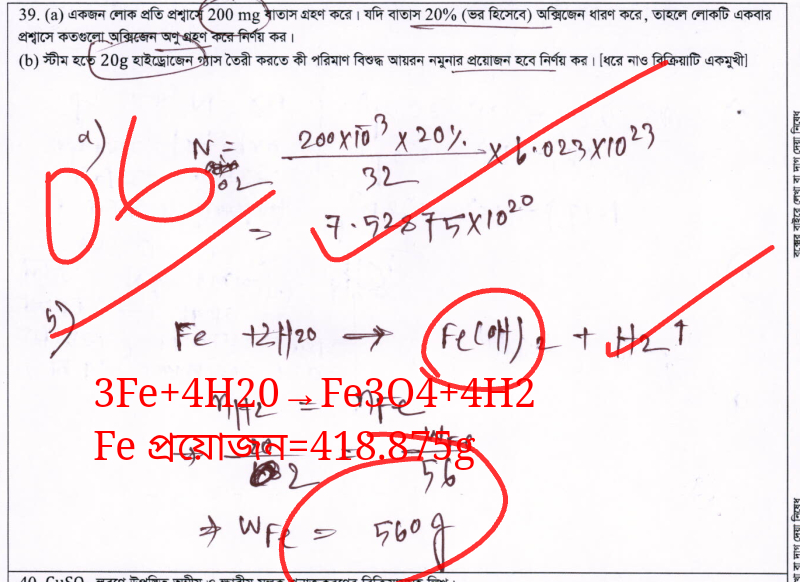 39. (a) একজন লোক প্রতি প্রশ্বাসে 200 mg বাতাস গ্রহণ করে। যদি বাতাস 20% (ভর হিসেবে) অক্সিজেন ধারণ করে, তাহলে লোকটি একবার
প্রশ্বাসে কতগুলো অক্সিজেন অণু গ্রহণ করে নির্ণয় কর।
(b) স্টীম হতে 20g হাইড্রোজেন গ্যাস তৈরী করতে কী পরিমাণ বিশুদ্ধ আয়রন নমুনার প্রয়োজন হবে নির্ণয় কর। [ধরে নাও বিক্রিয়াটি একমুখী]
a) N O2 = 200×10^-3 × 20% / 32 × 6.023×10^23
06
= 7.52875×10^20
b) Fe + 2H2O → Fe(OH)2 + H2↑
3Fe+4H2O→Fe3O4+4H2
nH2 = nFe
Fe প্রয়োজন=418.875g
⇒ 20 / 2 = WFe / 56
⇒ WFe = 560 g